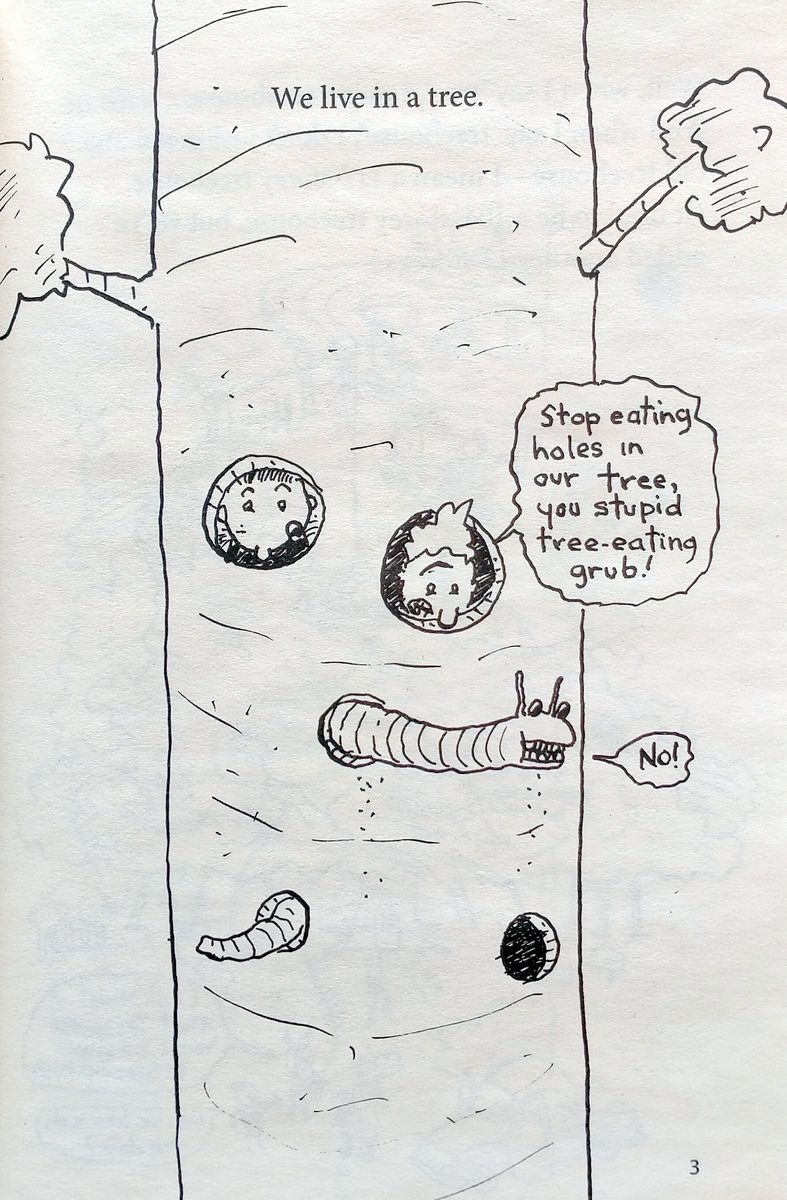 We live in a tree.
Stop eating
holes in
our tree,
you stupid
tree-eating
grub!
No!
3